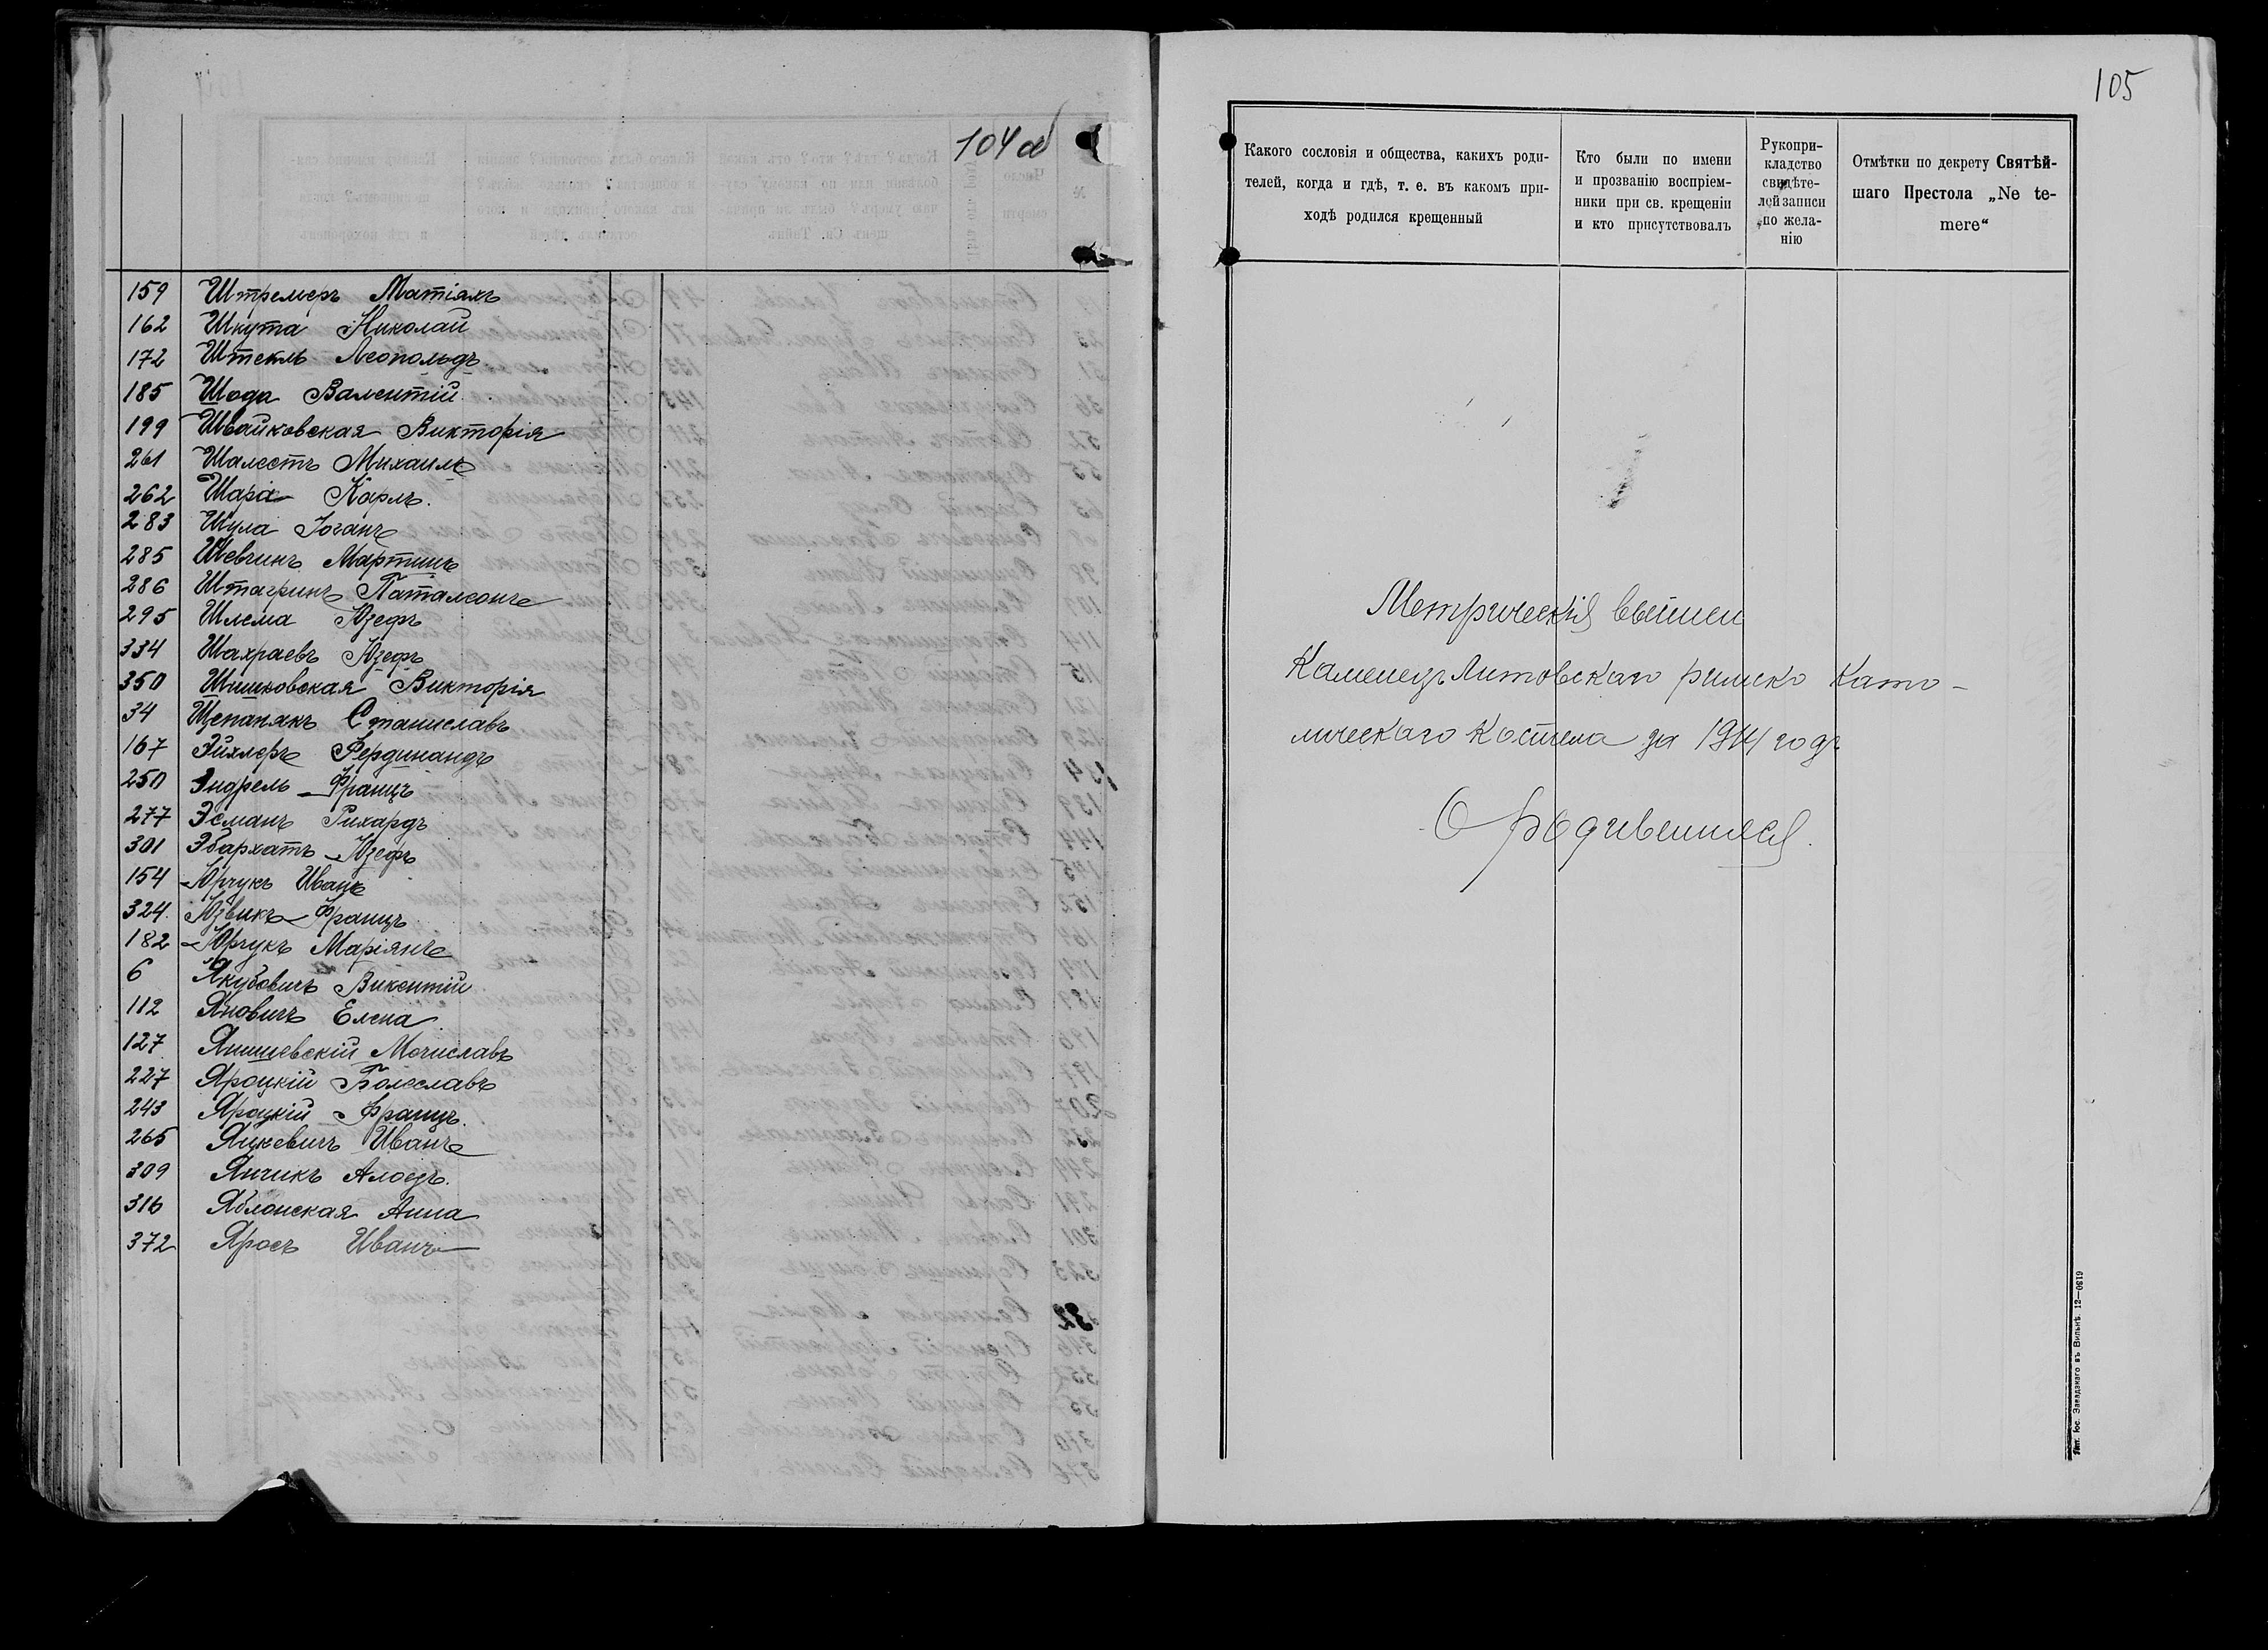 104 об
159 Штремеръ Матіяхъ
162 Шкута Николай
172 Штекль Леопольдъ
185 Шода Валентій
199 Швайковская Викторія
261 Шалестъ Михаилъ
262 Шара Карлъ.
283 Шула Іоганъ
285 Шевчинъ Мартинъ
286 Штагринъ Паталеонъ
295 Шлема Юзефъ
334 Шахраевъ Юзефъ
350 Шишковская Викторія
34 Щепанякъ Станиславъ
167 Эйхлеръ Фердинандъ
250 Эндрель Францъ
277 Эсманъ Рихардъ
301 Эбархатъ Юзефъ
154 Юрчукъ Иванъ
324. Юзвикъ Францъ
182 Юрчукъ Маріянъ
6 Якубовичъ Викентій
112 Яновичъ Елена
127 Янишевскій Мечиславъ
227 Яроцкій Болеславъ
243 Яроцкій Францъ.
265 Яцкевичъ Иванъ
309 Янчикъ Алоедъ.
316 Яблонская Анна
372 Яросъ Иванъ
105
Какого сословія и общества, какихъ роди-
телей, когда и гдѣ, т. е. въ какомъ при-
ходѣ родился крещенный
Кто были по имени
и прозванію воспріем-
ники при св. крещеніи
и кто присутствовалъ
Рукопри-
кладство
свидѣте-
лей записи
по жела-
нію
Отмѣтки по декрету Святѣй-
шаго Престола „Ne te-
mere“
Метрическія
Каменецъ Литовскаго римско Като-
лическаго Костела за 1914 годъ
О родившихся.
Тип. Іос. Завадзкаго въ Вильнѣ. 12—0619